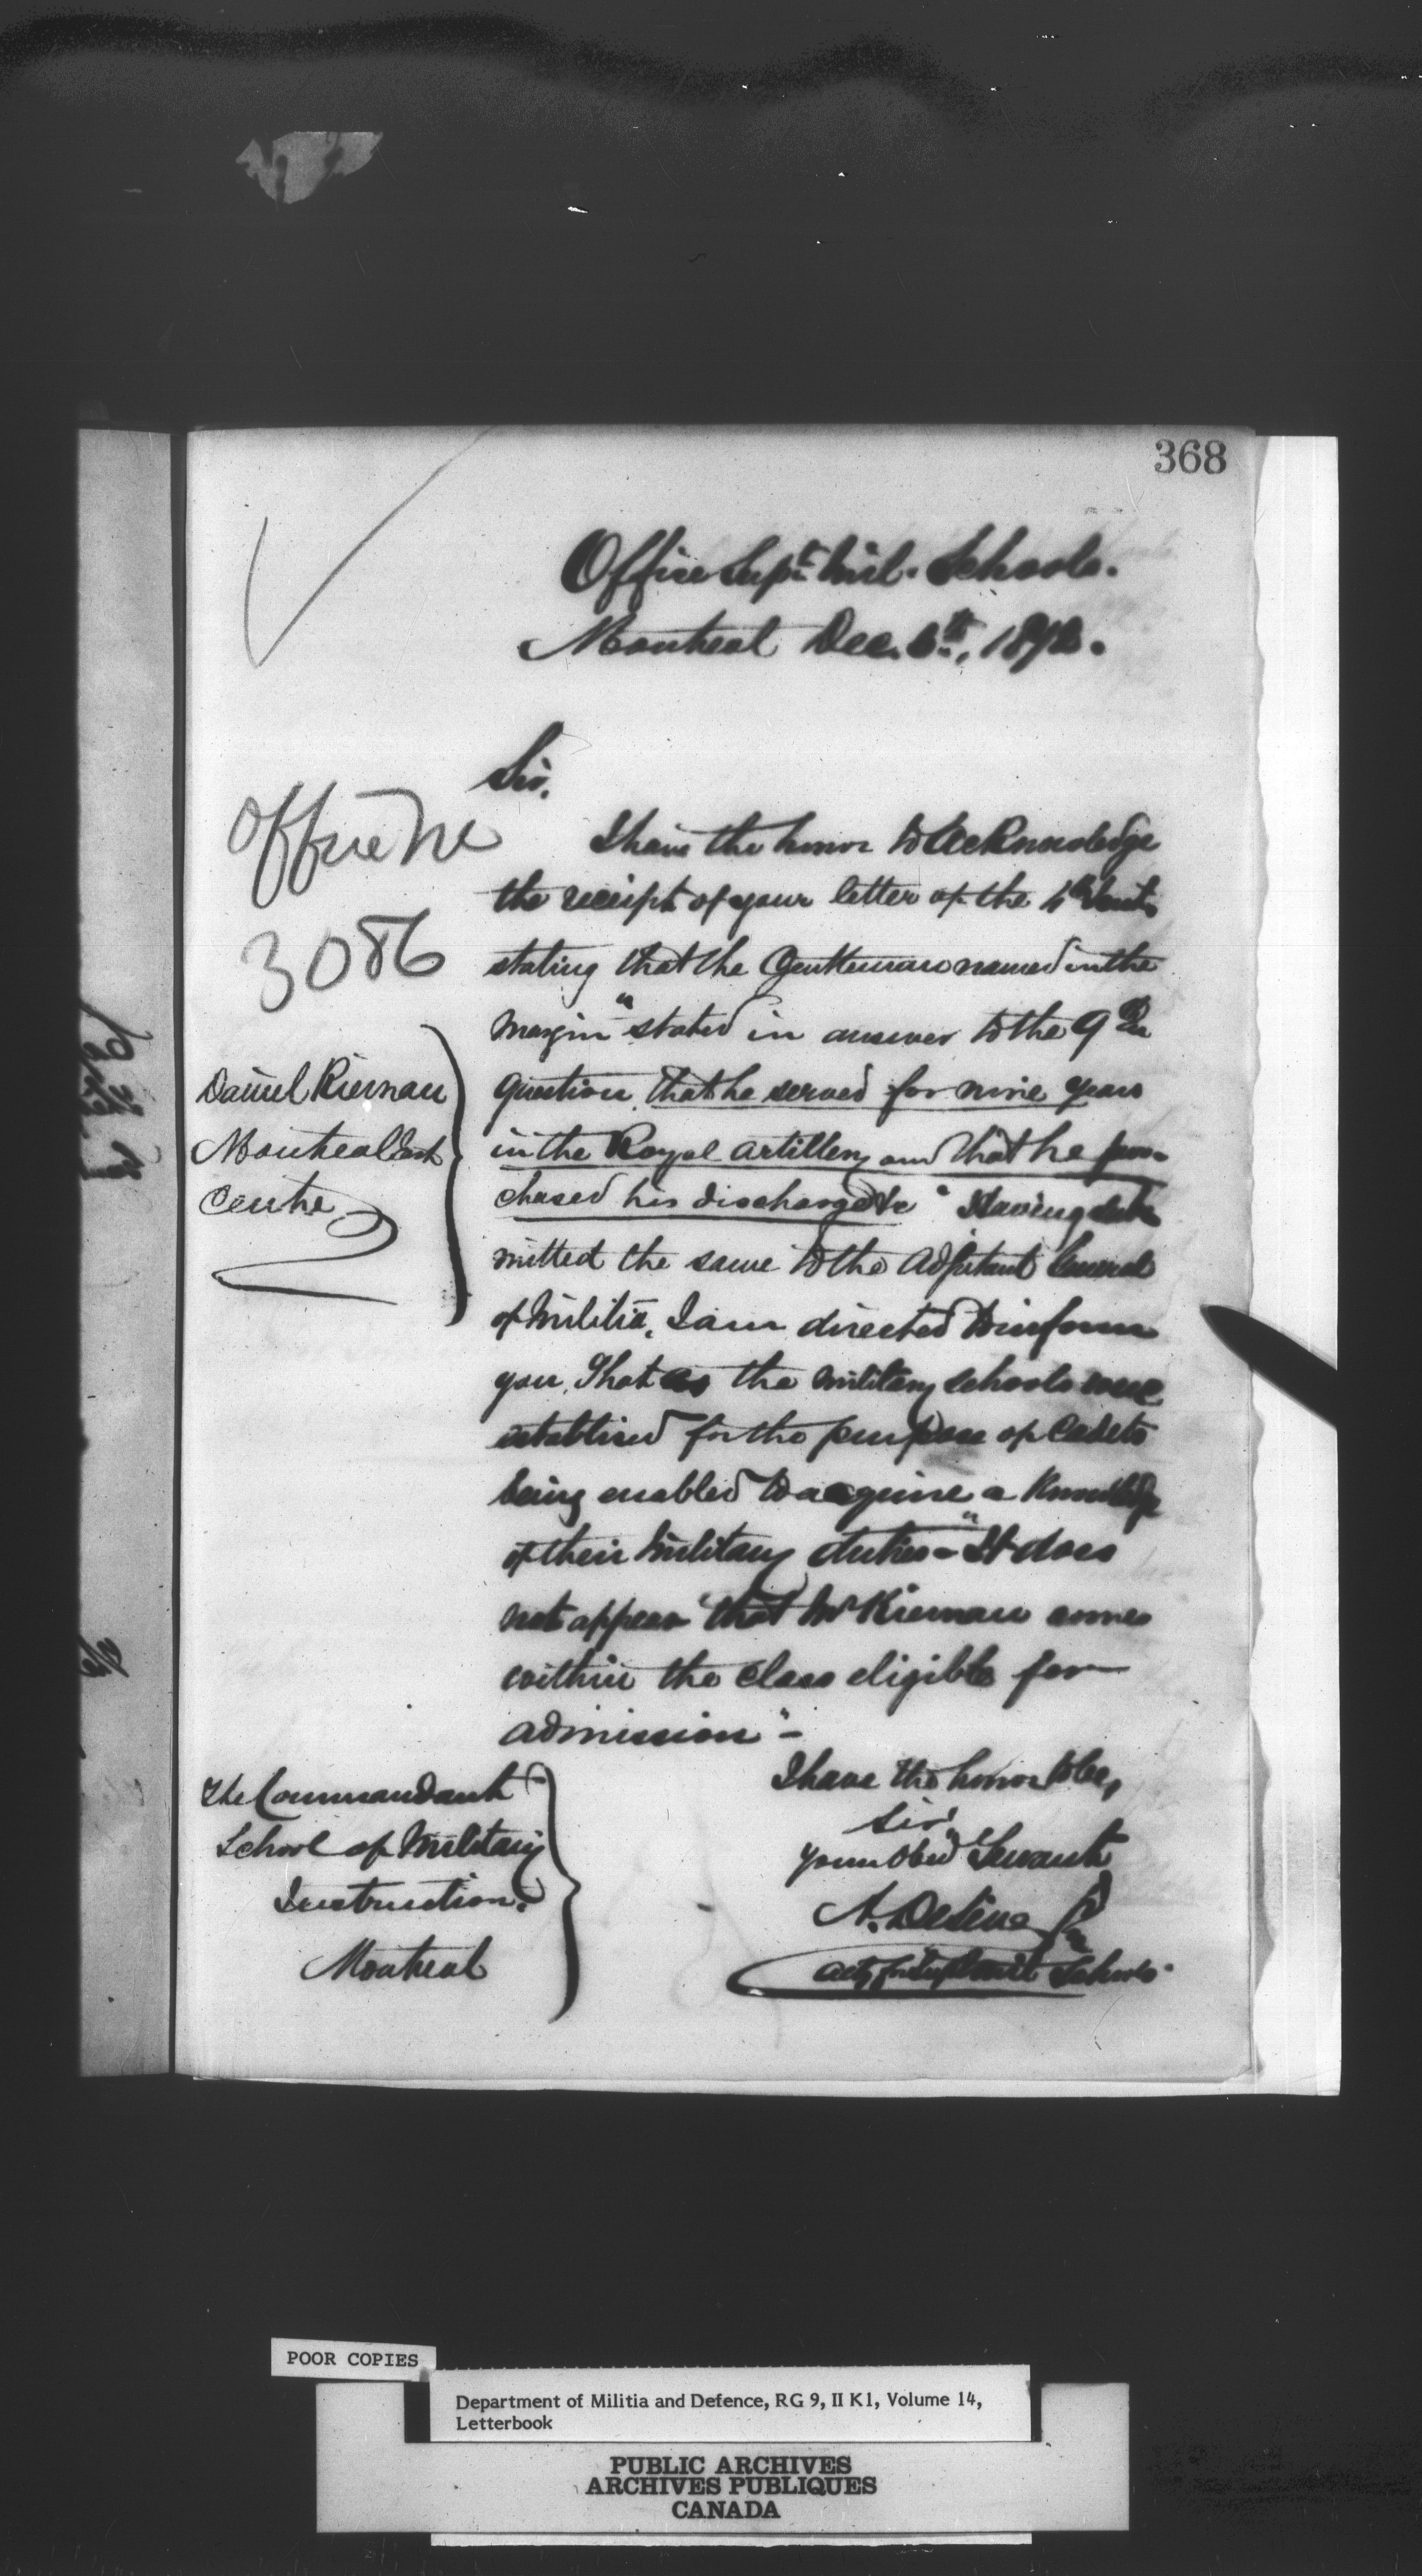 368
Office Supt. Mil. Schools.
Montreal Dec. 6th, 1872.
Sir,
I have the honor to acknowledge
the receipt of your letter of the 4th Inst,
stating that the Gentleman named in the
margin "stated in answer to the 9th
question, that he served for nine years
in the Royal Artillery and that he pur-
chased his discharge &c" Having sub-
mitted the same to the Adjutant General
of Militia, I am directed to inform
you, That as the Military Schools were
establised for the purpose of Cadets
being enabled to acquire a Knowledge
of their Military duties - "It does
not appear that Mr Kiernan comes
within the class eligible for
admission" -
I have the honor to be,
Sir,
Your Obed Servant
Acty for Supt Mil Schools.
Office No
3086
Daniel Kiernan
Montreal East
Centre
The Commandant
School of Military
Instruction.
Montreal
POOR COPIES
Department of Militia and Defence, RG 9, II K1, Volume 14,
Letterbook
PUBLIC ARCHIVES
ARCHIVES PUBLIQUES
CANADA